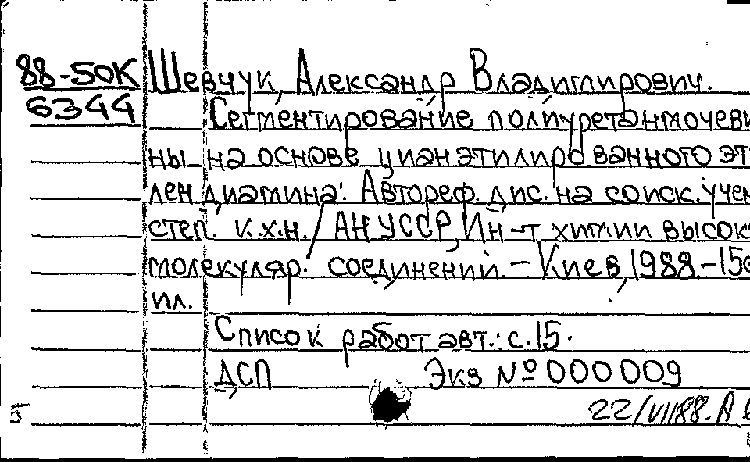 88-50К Шевчук, Александр Владимирович.
6344 Сегментирование полиуретанмочеви
ны на основе цианэтилированного эт
лендиамина: Автореф. дис. на соиск. учен
степ. к.х.н. / АН УССР, Ин-т химии высок
молекуляр. соединений. – Киев, 1988. – 15с
ил.
Список работ авт.: с.15.
ДСП Экз № 000009
22/VII88. А